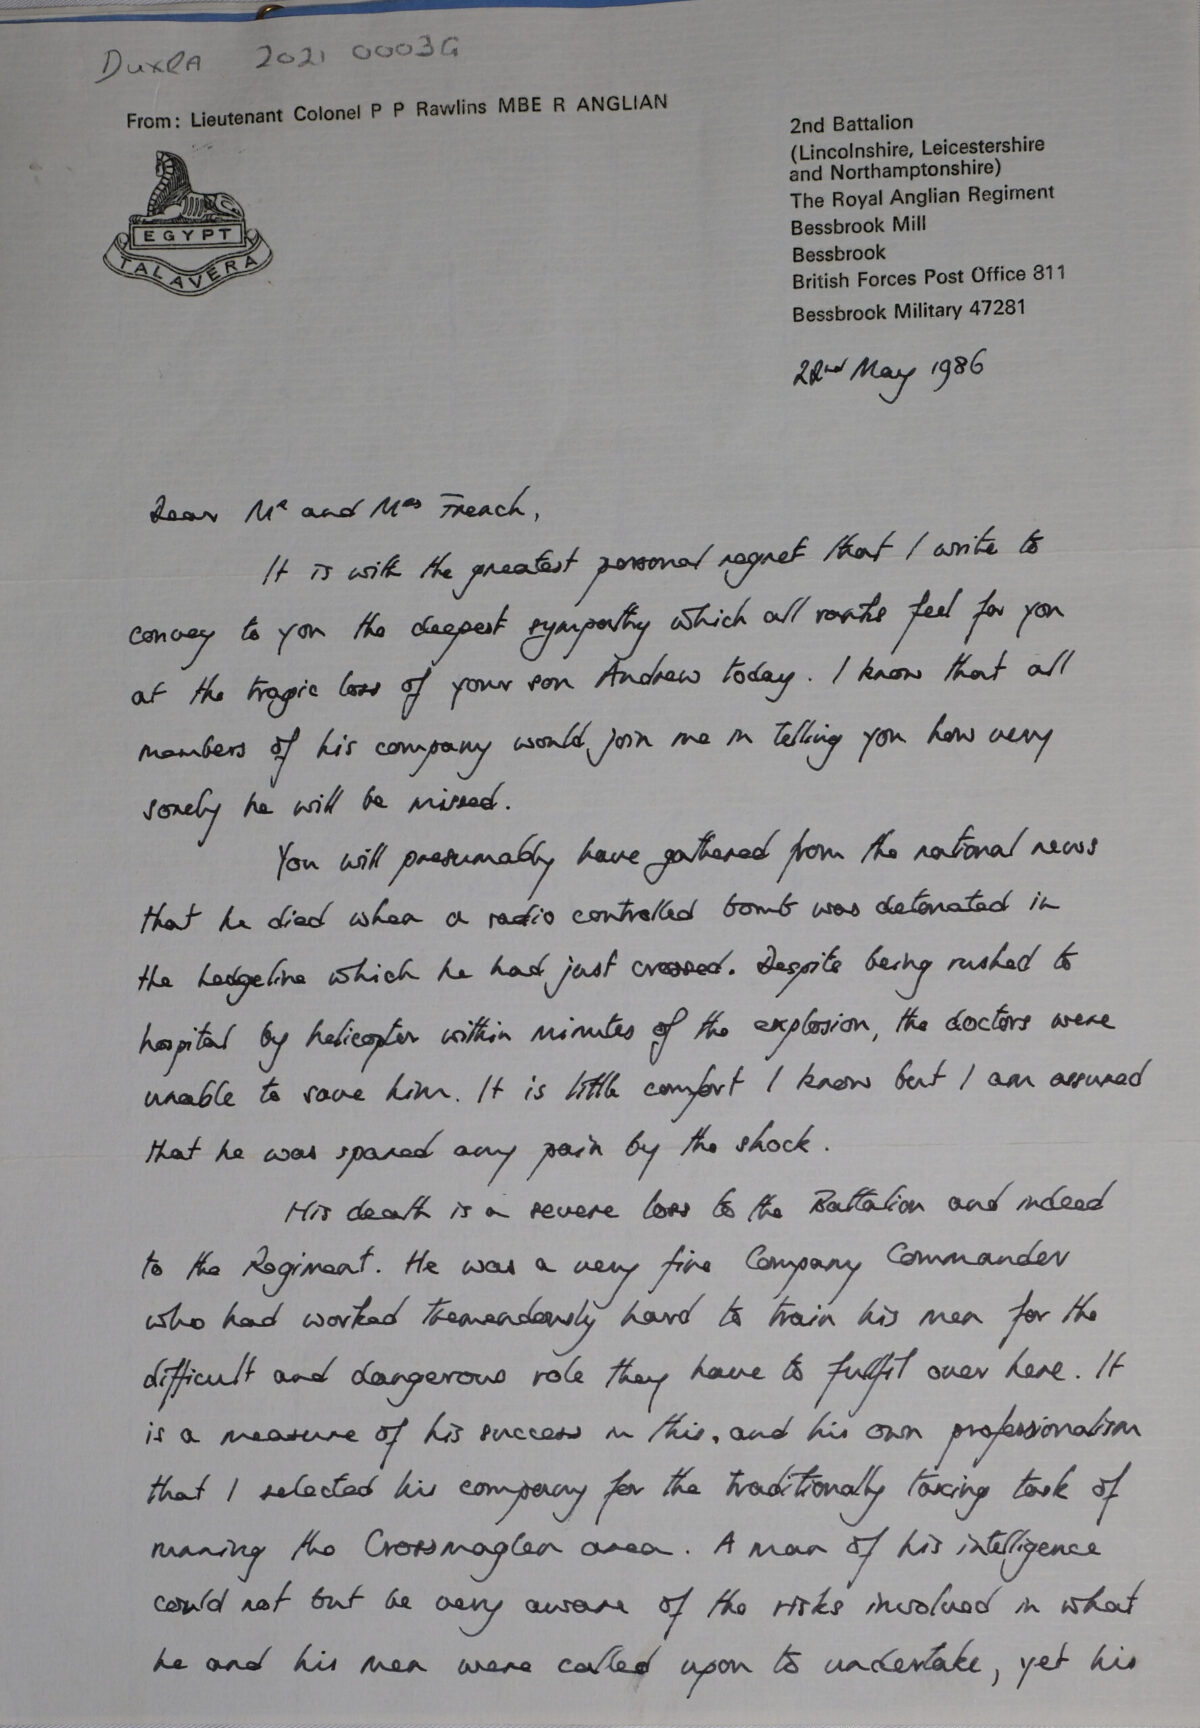 DUXRA 2021 0003G
From: Lieutenant Colonel P P Rawlins MBE R ANGLIAN
EGYPT
TALAVERA
2nd Battalion
(Lincolnshire, Leicestershire
and Northamptonshire)
The Royal Anglian Regiment
Bessbrook Mill
Bessbrook
British Forces Post Office 811
Bessbrook Military 47281
22nd May 1986
Dear Mr and Mrs French,
It is with the greatest personal regret that I write to
convey to you the deepest sympathy which all ranks feel for you
at the tragic loss of your son Andrew today. I know that all
members of his company would join me in telling you how very
sorely he will be missed.
You will presumably have gathered from the national news
that he died when a radio controlled bomb was detonated in
the hedgeline which he had just crossed. Despite being rushed to
hospital by helicopter within minutes of the explosion, the doctors were
unable to save him. It is little comfort I know but I am assured
that he was spared any pain by the shock.
His death is a severe loss to the Battalion and indeed
to the Regiment. He was a very fine Company Commander
who had worked tremendously hard to train his men for the
difficult and dangerous role they have to fulfil over here. It
is a measure of his success in this, and his own professionalism
that I selected his company for the traditionally taxing task of
running the Crossmaglen area. A man of his intelligence
could not but be very aware of the risks involved in what
he and his men were called upon to undertake, yet his